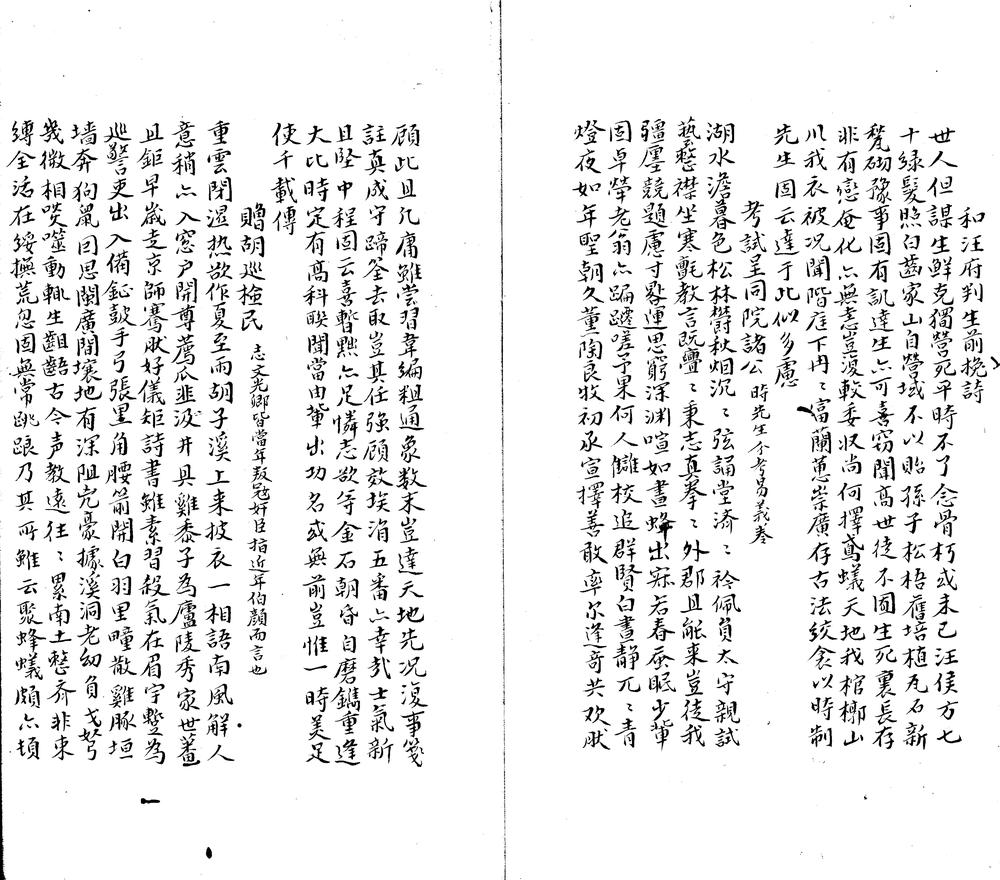 和汪府判生前挽詩
世人但謀生鮮克獨營死平時不了念骨朽或未已汪侯方七
十綠髮照白齒家山自營域不以貽孫子松梧舊培植瓦石新
甃砌豫事固有訊達生亦可喜竊聞高世徒不囿生死裏長存
非有戀奄化亦無恚豈復較委収尚何擇鳶蟻天地我棺槨山
川我衣被况聞階庭下冉冉富蘭蕙崇廣存古法絞衾以時制
先生固云達于此似多慮
考試呈同院諸公時先生分考易義卷
湖水澹暮色松林欝秋烟沉沉弦誦堂济济衿佩負太守親試
藝整襟坐寒氈教言既亹亹秉志真拳拳外郡且能来豈徒我
疆㕓競題慮寸晷運思窮深渊喧如晝蜂出寐若春蚕眠少軰
固卓犖老翁亦蹁躚嗟予果何人讎校追群賢白晝静兀兀青
燈夜如年聖朝久薰陶良牧初承宣擇善敢率尔逢竒共欢肰
顧此且孔庸雖嘗習韋編粗通象数末豈達天地先况復事箋
註真成守蹄筌去取豈其任强顔效埃涓五番亦幸哉士氣新
且坠中程固云喜暫黜亦足憐志欲等金石朝昏自磨鐫重逢
大比時定有髙科聮開當由軰出功名或無前豈惟一時美足
使千載傳
贈胡巡檢民志文光卿皆當年叛冦奸臣指近年伯顔而言也
重雲閉濕热欲作夏至雨胡子溪上来披衣一相語南風解人
意稍亦入窓户開尊薦瓜韭汲井具雞黍子為廬陵秀家世蓋
且鉅早歳走京師騫肰好儀矩詩書雖素習殺氣在眉宇蹔為
巡警吏出入備鉦鼓手弓張黒角腰箭開白羽里疃散雞豚垣
墙奔狗鼠囙思閩廣間壤地有深阻兇豪據溪洞老幼負戈弩
㡬微相啖噬動輒生齟齬古今声教遠往往累南土整斉非束
縛全活在綏撫荒忽固無常跳踉乃其所雖云聚蜂蟻頗亦頓